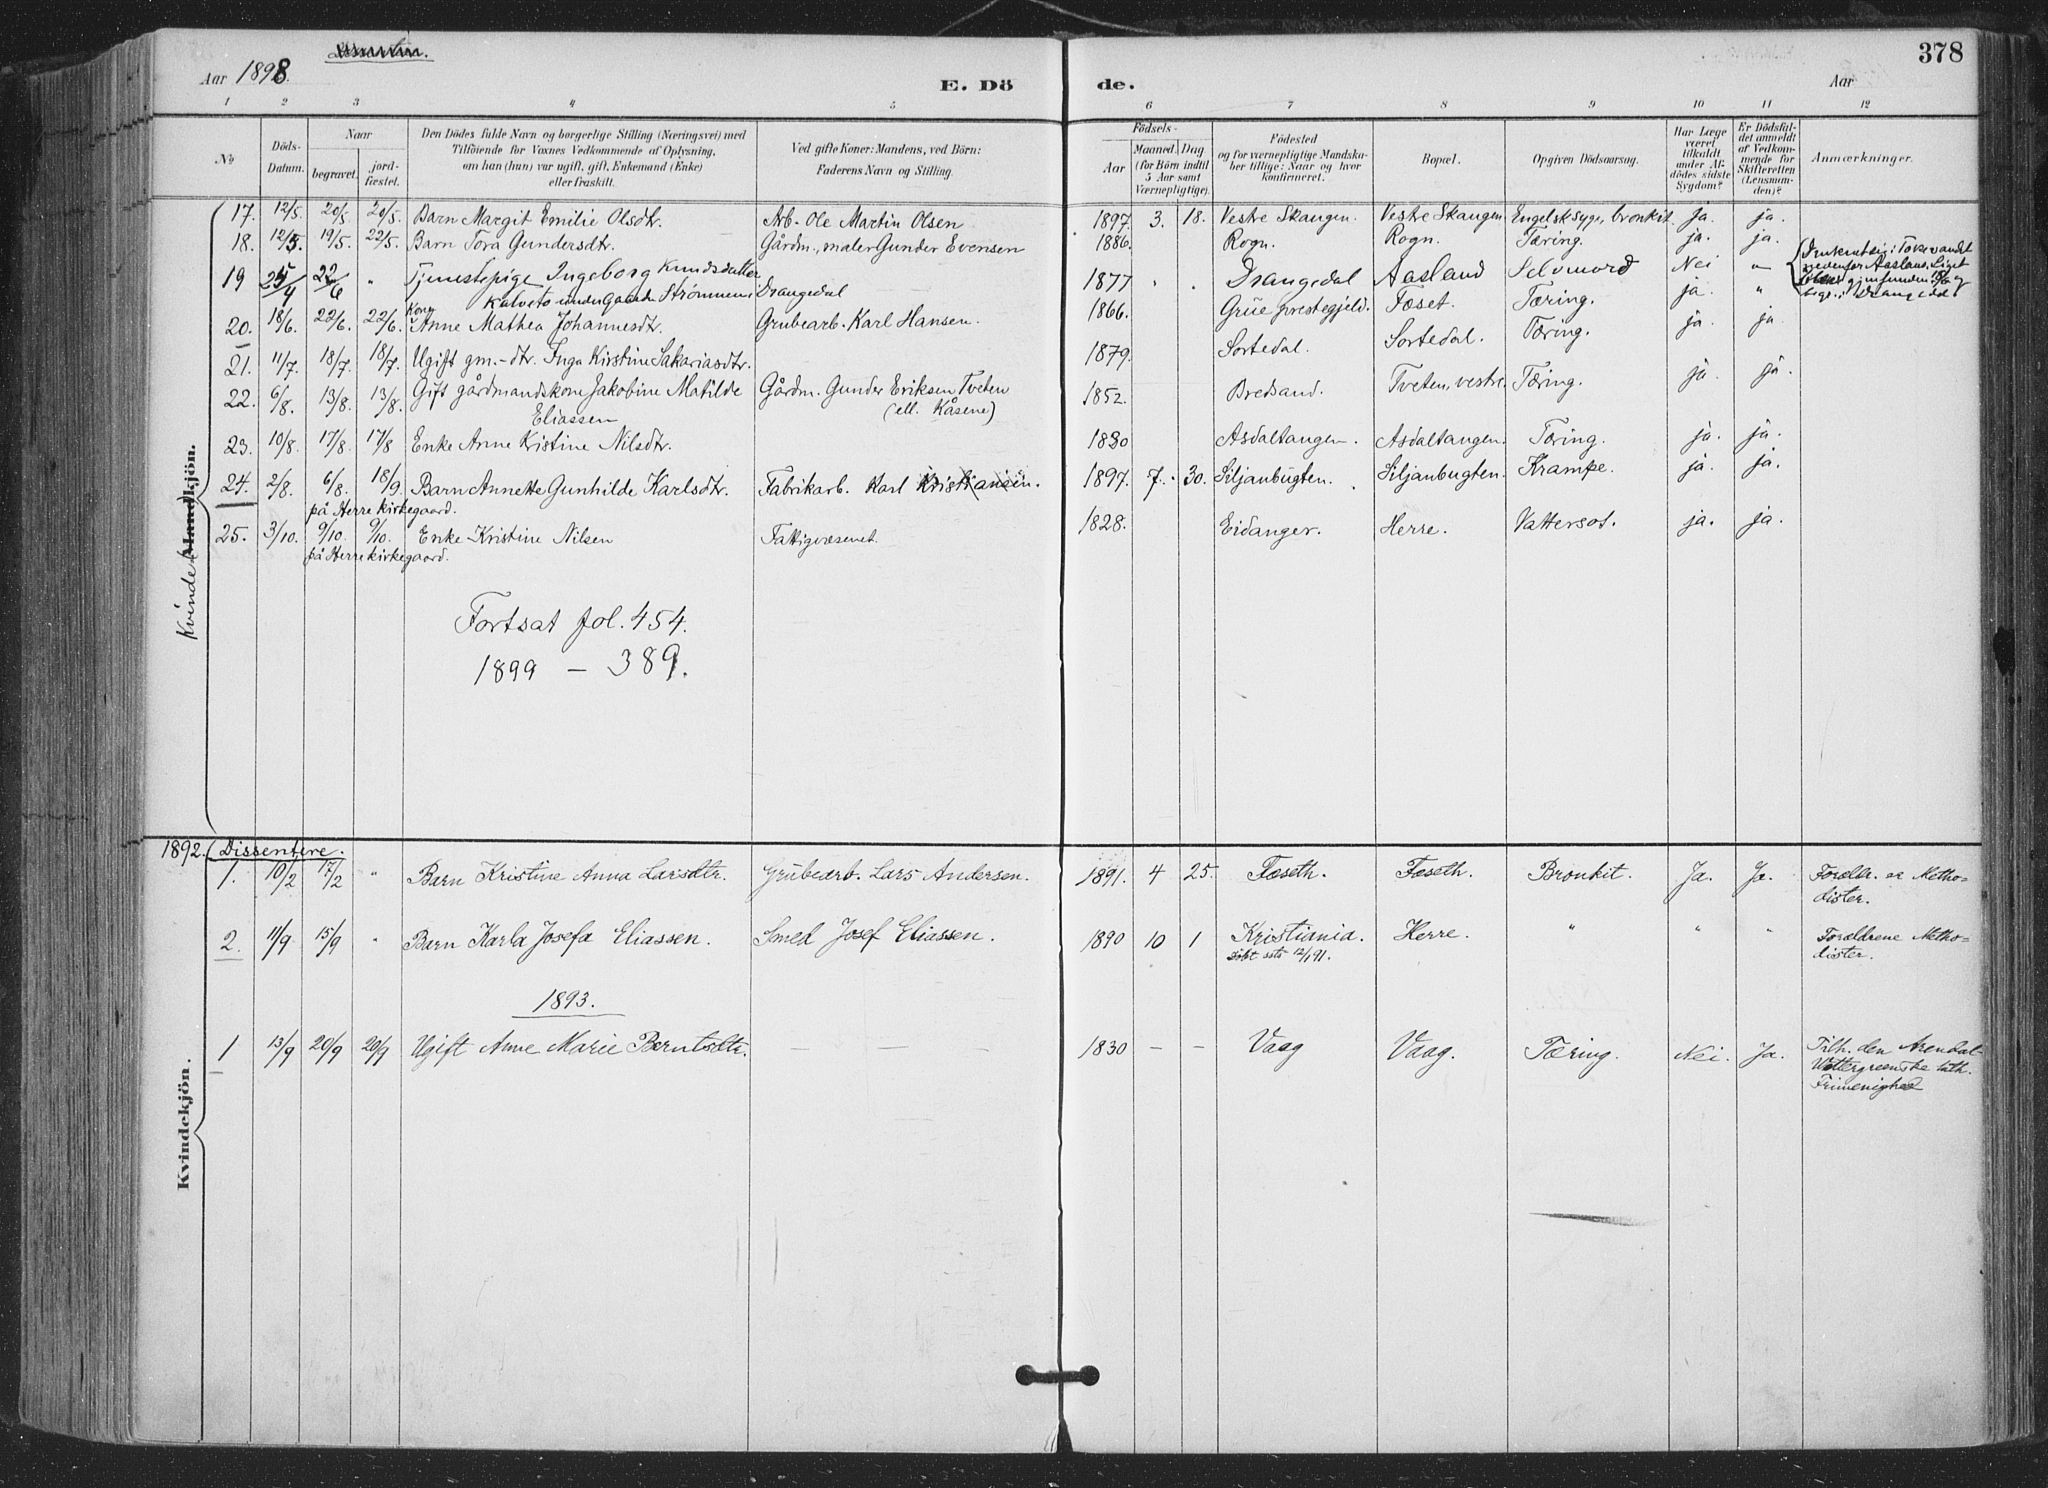 378
Aar 1898
E. Dö de.
Aar
1 2 3 4 5 6 7 8 9 10 11 12
No
Döds-Datum.
Naar begravet. jordfæstet.
Den Dödes fulde Navn og borgerlige Stilling (Næringsvei) med
Tilföiende for Voxnes Vedkommende af Oplysning,
om han (hun) var ugift, gift, Enkemand (Enke)
eller fraskilt.
Ved gifte Koner: Mandens, ved Börn:
Faderens Navn og Stilling.
Födsels-
Aar Maaned. Dag
(for Börn indtil
5 Aar samt
Værnepligtige).
Födested
og for værnepligtige Mandska-
ber tillige: Naar og hvor
konfirmeret.
Bopæl.
Opgiven Dödsaarsag.
Har Læge
været
tilkaldt
under Af-
dödes sidste
Sygdom?
Er Dödsfal-
det anmeldt
af Vedkom-
mende for
Skifteretten
(Lensman-
den)?
Anmærkninger.
Kvinde (Mandkjön.
17. 12/5. 20/5. 20/5. Barn Margit Emilie Olsdtr. Arb. Ole Martin Olsen 1897. 3. 18. Vestre Skangen. Vestre Skangen. Engelsk syge, bronkit. ja. ja.
18. 12/5. 19/5. 22/5. Barn Tora Gundersdtr. Gårdm., maler Gunder Evensen 1886. Rogn. Rogn. Tæring. ja. ja.
19 22/6 " Tjenestepige Ingeborg Knudsdatter Drangedal 1877 " " Drangedal Aasland Selvmord Nei "
Kalvets under Gaarde Strømmen
Tokevandet
nedenfor Aasland. Liget
gjenfunden
Drangedal
20. 18/6. 22/6. 22/6. Kone Anne Mathea Johannesdtr. Grubearb. Karl Hansen. 1866. Grüe prestegjeld. Fæset. Tæring. ja. "
21. 11/7. 18/7. 18/7. Ugift gm.-dtr. Inga Kirstine Sakariasdtr. 1879. Sortedal. Sortedal. Tæring. ja. ja
22. 6/8. 13/8. 13/8. Gift gårdmandskone Jakobine Matilde Gårdm. Gunder Eriksen Tveten 1852. Bredsand. Tveten, vestre. Tæring. ja. ja.
Eliassen (ell. Kåsene)
23. 10/8. 17/8. 17/8 Enke Anne Kristine Nilsdtr. 1830 Asdaltangen. Asdaltangen. Tæring. ja. ja.
24. 2/8. 6/8. 18/9 Barn Annette Gunhilde Karlsdtr. Fabrikarb. Karl Kristiansen. 1897. 7. 30. Siljanbugten. Siljanbugten. Krampe. ja. ja.
på Herre kirkegaard.
25. 3/10. 9/10. 9/10. Enke Kristine Nilsen Fattigvæsenet. 1828. Eidanger. Herre. Vattersot. ja. ja.
på Herre kirkegaard.
Fortsat fol. 454.
1899 – 389.
1892. Dissentere.
Kvindekjön.
1. 10/2 17/2 " Barn Kristine Anna Larsdtr. Grubearb. Lars Andersen. 1891. 4 25. Fæseth. Fæseth. Bronkit. Ja. Ja. Forældr. ee Metho-
dister.
2. 11/9 15/9 " Barn Karla Josefa Eliassen. Smed Josef Eliassen. 1890 10 1 Kristiania. Herre. " " " Forældrene Metho-
dister.
1893.
1 13/9 20/9 20/9 Ugift Anne Marie Berntsdtr. — — — 1830 — — Vaag Vaag. Tæring. Nei. Ja. Tilh. den Arendal-
Frimenighed